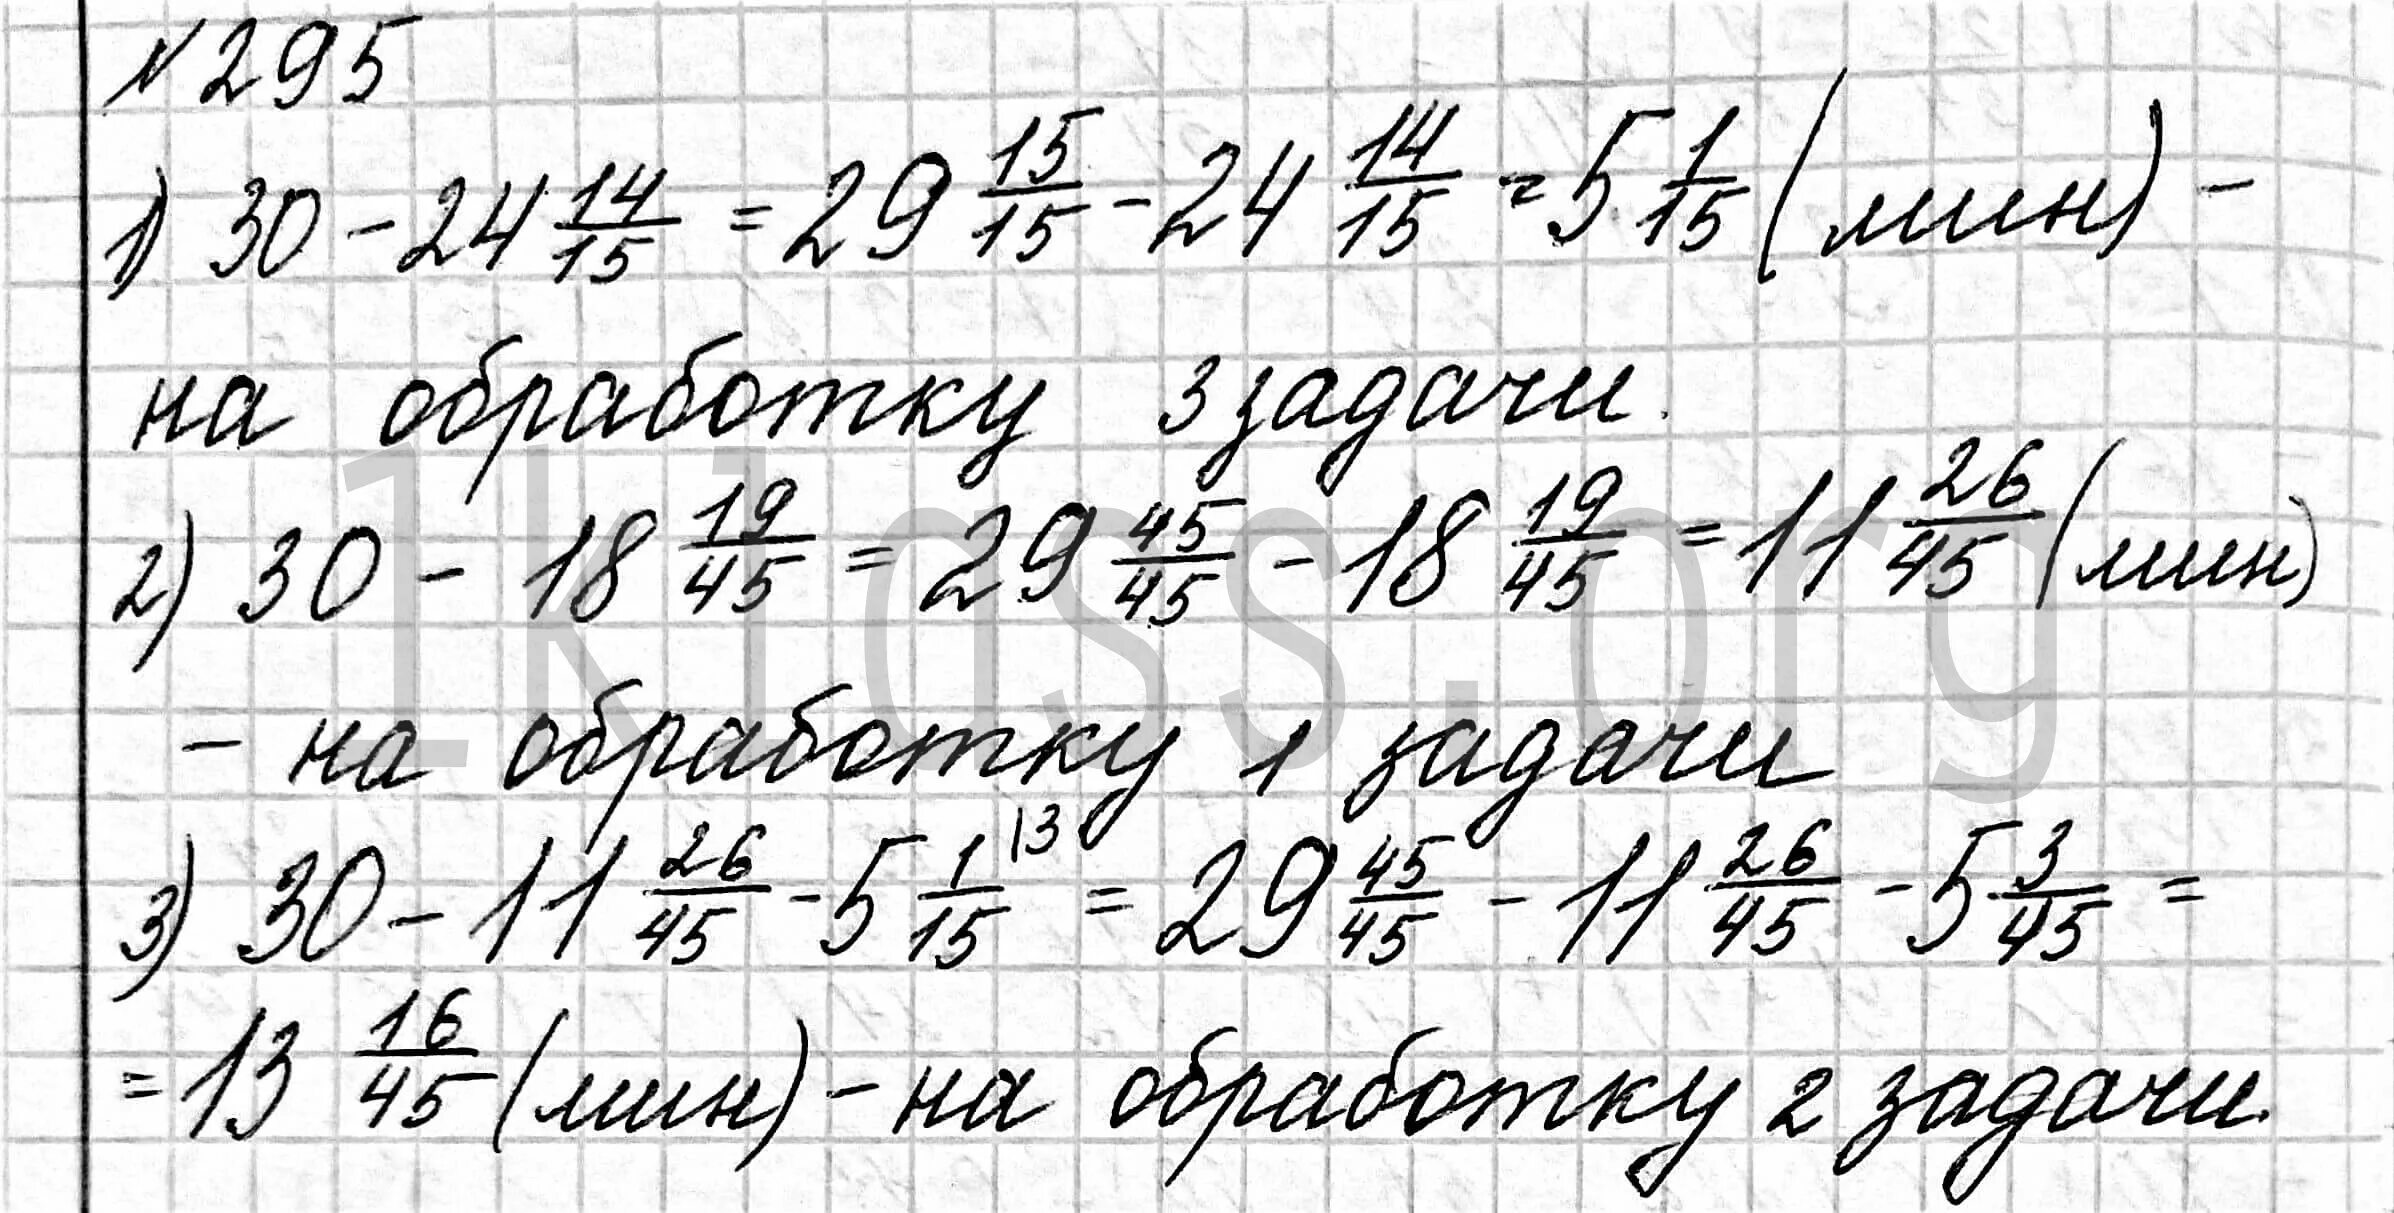 № 295
1) 30 - 24 14/15 = 29 15/15 - 24 14/15 = 5 1/15 (мин) -
на обработку 3 задачи.
2) 30 - 18 19/45 = 29 45/45 - 18 19/45 = 11 26/45 (мин)
- на обработку 1 задачи
3) 30 - 11 26/45 - 5 1/15 \3 = 29 45/45 - 11 26/45 - 5 3/45 =
= 13 16/45 (мин) - на обработку 2 задачи.
1klass.org